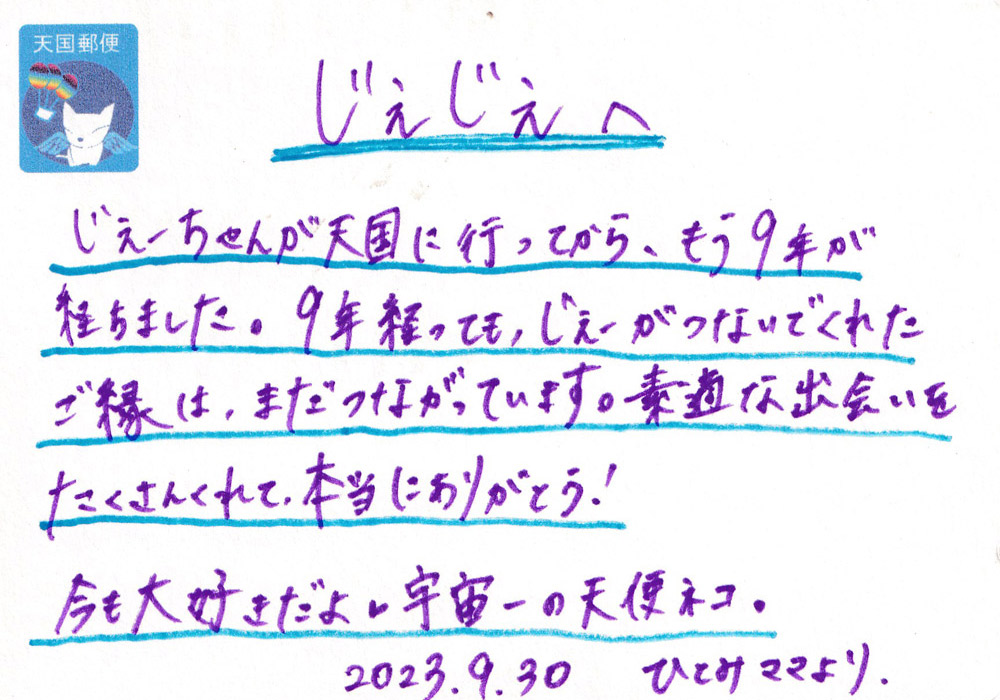 天国郵便
じぇじぇへ
じぇーちゃんが天国に行ってから、もう9年が
経ちました。9年経っても、じぇーがつないでくれた
ご縁は、まだつながっています。素適な出会いを
たくさんくれて、本当にありがとう!
今も大好きだよ、宇宙一の天使ネコ。
2023.9.30 ひとみママより.